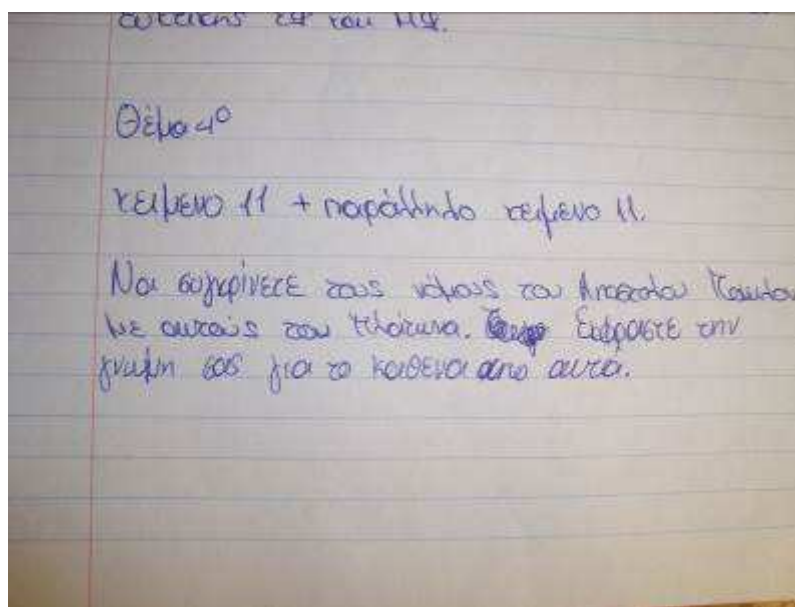 του ΠΦ.
Θέμα 4º
κείμενο 11 + παράλληλο κείμενο 11.
Να συγκρίνετε τους νόμους του Αποστόλου Παύλου
με αυτούς του Πλάτωνα. Εκφράστε την
γνώμη σας για το καθένα απο αυτά.